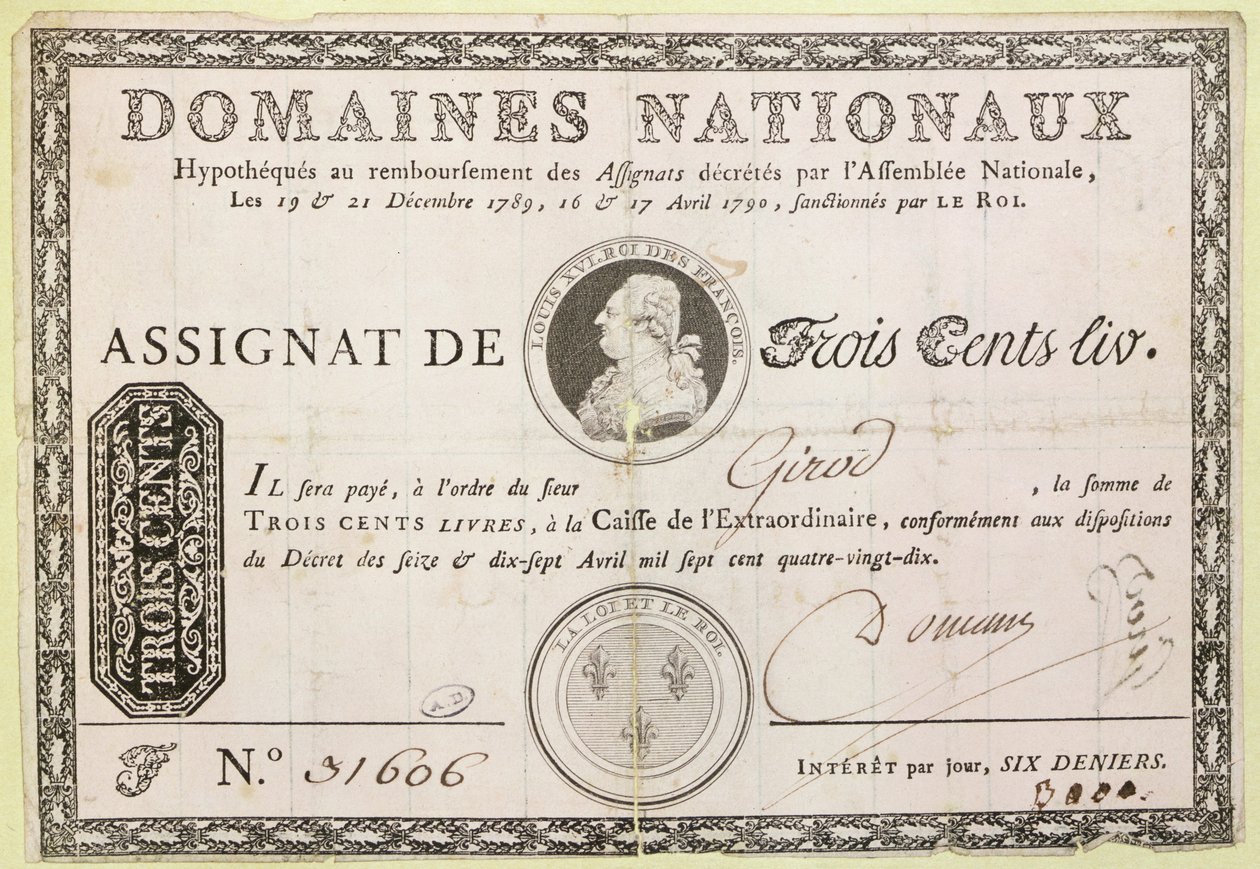 DOMAINES NATIONAUX
Hypothéqués au rembourſement des Aſſignats décrétés par l'Aſſemblée Nationale,
Les 19 & 21 Décembre 1789, 16 & 17 Avril 1790, ſanctionnés par LE ROI.
LOUIS XVI. ROI DES FRANÇOIS.
ASSIGNAT DE Trois Cents liv.
TROIS CENTS
IL ſera payé, à l'ordre du ſieur Girod, la ſomme de
TROIS CENTS LIVRES, à la Caiſſe de l'Extraordinaire, conformément aux diſpoſitions
du Décret des ſeize & dix-ſept Avril mil ſept cent quatre-vingt-dix.
LA LOI ET LE ROI.
A.D.
N.º 31606
INTÉRÊT par jour, SIX DENIERS.